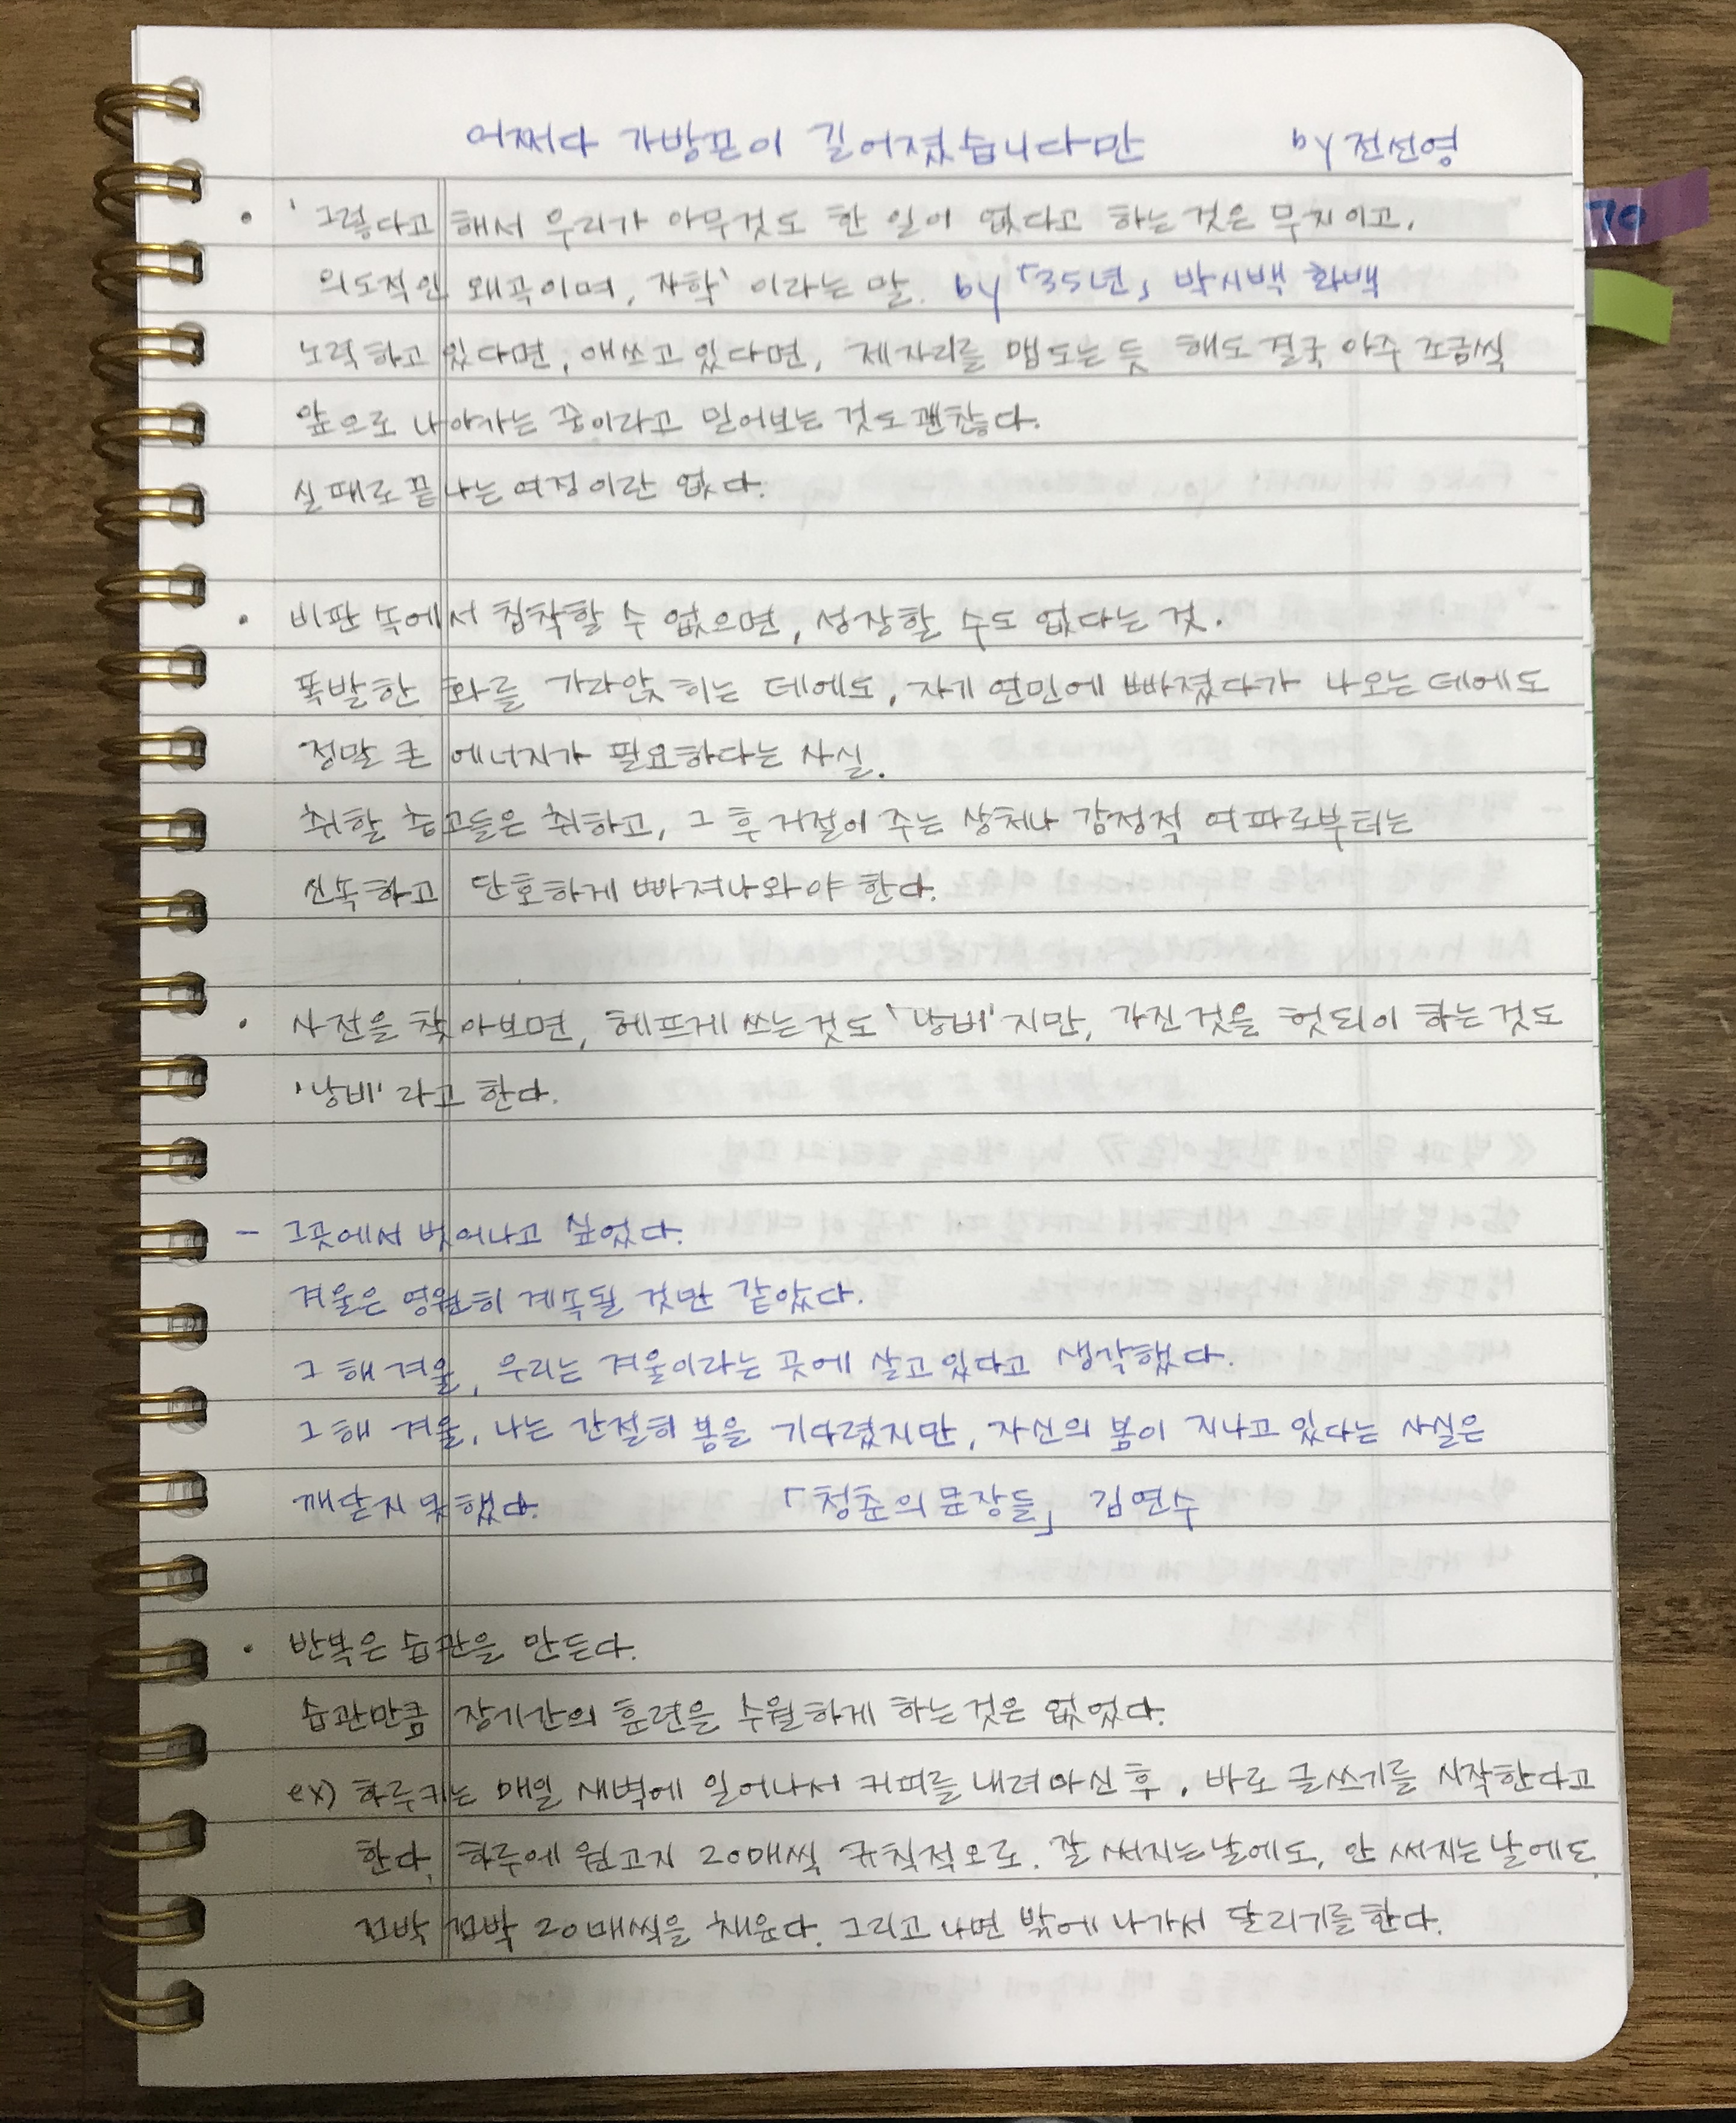 어쩌다 가방끈이 길어졌습니다만 by 전선영
• '그렇다고 해서 우리가 아무것도 한 일이 없다고 하는 것은 무지이고,
의도적인 왜곡이며, 자학' 이라는 말. by 「35년」 박시백 화백
노력하고 있다면, 애쓰고 있다면, 제자리를 맴도는 듯 해도 결국 아주 조금씩
앞으로 나아가는 중이라고 믿어보는 것도 괜찮다.
실패로 끝나는 여정이란 없다.
• 비판 속에서 침착할 수 없으면, 성장할 수도 없다는 것.
폭발한 화를 가라앉히는 데에도, 자기 연민에 빠졌다가 나오는 데에도
정말 큰 에너지가 필요하다는 사실.
취할 충고들은 취하고, 그 후 거절이 주는 상처나 감정적 여파로부터는
신속하고 단호하게 빠져나와야 한다.
• 사전을 찾아보면, 헤프게 쓰는 것도 '낭비'지만, 가진 것을 헛되이 하는 것도
'낭비'라고 한다.
- 그곳에서 벗어나고 싶었다.
겨울은 영원히 계속될 것만 같았다.
그 해 겨울, 우리는 겨울이라는 곳에 살고 있다고 생각했다.
그 해 겨울, 나는 간절히 봄을 기다렸지만, 자신의 봄이 지나고 있다는 사실은
깨닫지 못했다. 「청춘의 문장들」 김연수
• 반복은 습관을 만든다.
습관만큼 장기간의 훈련을 수월하게 하는 것은 없었다.
ex) 하루키는 매일 새벽에 일어나서 커피를 내려 마신 후, 바로 글쓰기를 시작한다고
한다. 하루에 원고지 20매씩 규칙적으로. 잘 써지는 날에도, 안 써지는 날에도
꼬박 꼬박 20매씩을 채운다. 그리고 나면 밖에 나가서 달리기를 한다.
70